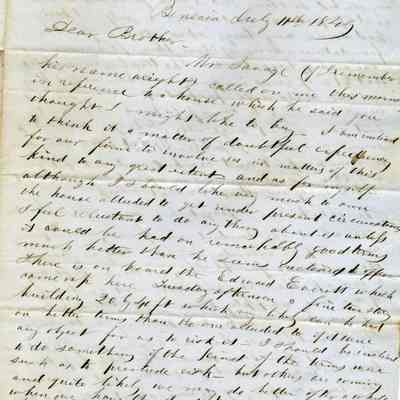 Benicia July 11th 1849
Dear Brother.
Mr Savage (if I remember
his name aright) called on me this morn
in reference to a house which he said you
thought I might like to buy. I am inclined
to think it a matter of doubtful expediency
for our firm to involve us in matters of this
kind to any great extent and as for myself
although I should like very much to own
the house alluded to yet under present circumstances
I feel reluctant to do anything about it unless
it could be had on remarkably good terms
much better than he
There is on board the Edward Everett which
came up here Tuesday afternoon a fine two story
building 20 by ft which can be had
on better terms than the one alluded to yet
any object for us to risk it - I should be inclined
to do something of the kind if the terms were
such as to preclude risk - but others are coming
and quite likely we may do better after a while
when we have